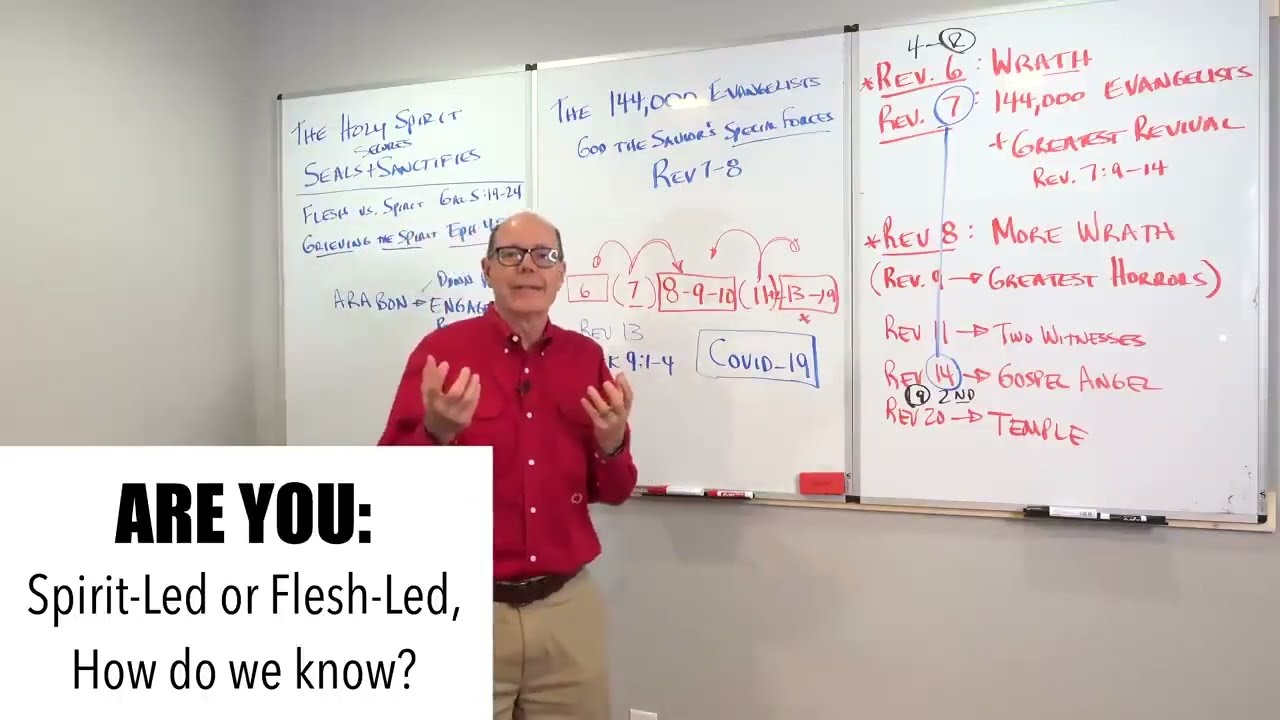 THE HOLY SPIRIT
SECURES
SEALS + SANCTIFIES
FLESH VS. SPIRIT GAL 5:19-24
GRIEVING THE SPIRIT EPH. 4:
DOWN
ARABON → ENGAGE
THE 144,000 EVANGELISTS
GOD THE SAVIOR'S SPECIAL FORCES
REV 7-8
6 (7) 8-9-10 (11+ 13-19
*
REV 13
9:1-4
COVID-19
4 R
*REV. 6: WRATH
REV. 7: 144,000 EVANGELISTS
+ GREATEST REVIVAL
REV. 7:9-14
*REV 8: MORE WRATH
(REV. 9 → GREATEST HORRORS)
REV 11 → TWO WITNESSES
REV 14 → GOSPEL ANGEL
19 2ND
REV 20 → TEMPLE
ARE YOU:
Spirit-Led or Flesh-Led,
How do we know?